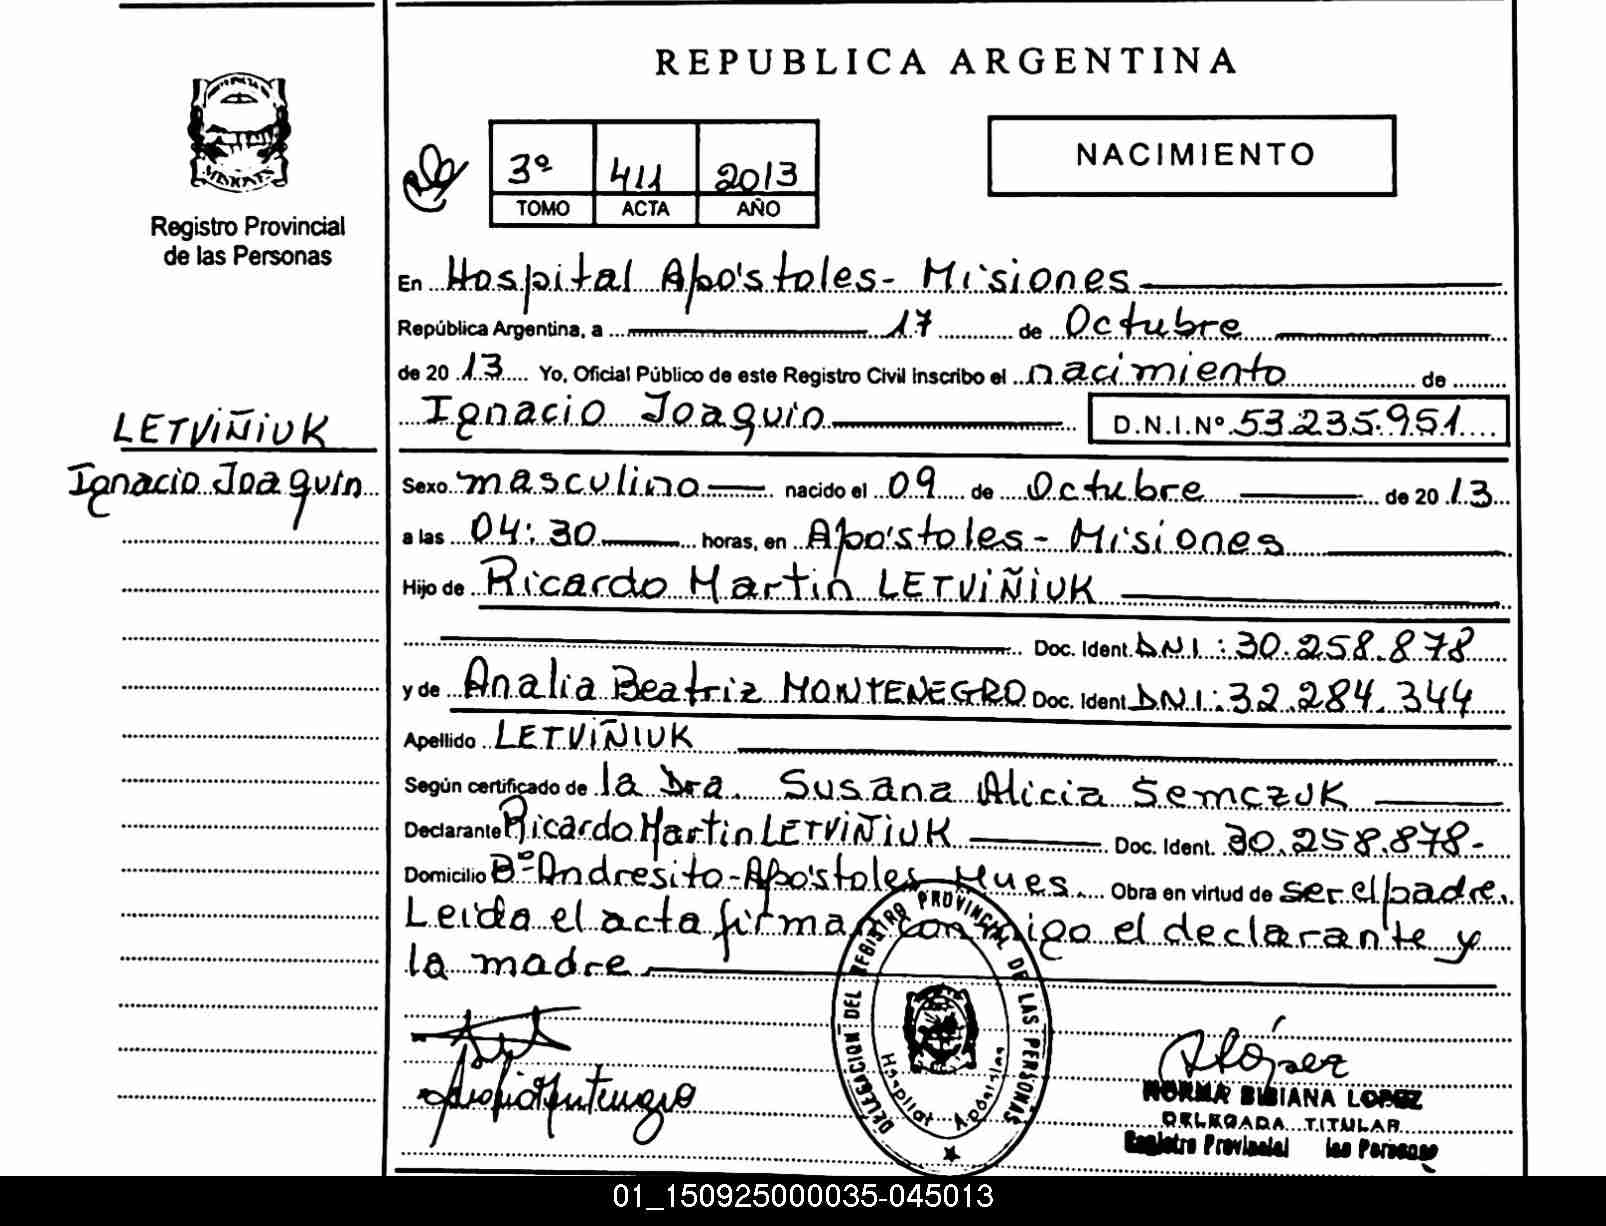 REPUBLICA ARGENTINA
MISIONES
Registro Provincial
de las Personas
3º 411 2013
TOMO ACTA AÑO
NACIMIENTO
En Hospital Apóstoles - Misiones
República Argentina, a 17 de Octubre
de 2013 Yo, Oficial Público de este Registro Civil inscribo el nacimiento de
Ignacio Joaquín D.N.I.Nº 53.235.951
LETViÑiUK
Ignacio Joaquín
Sexo masculino nacido el 09 de Octubre de 2013
a las 04:30 horas, en Apóstoles - Misiones
Hijo de Ricardo Martin LETViÑiUK
Doc. Ident. DNI: 30.258.878
y de Analia Beatriz MONTENEGRO Doc. Ident. DNI: 32.284.344
Apellido LETViÑIUK
Según certificado de la Dra. Susana Alicia Semczuk
Declarante Ricardo Martin LETViÑiUK Doc. Ident. 30.258.878-
Domicilio Bº Andresito - Apóstoles Mnes. Obra en virtud de ser el padre.
Leida el acta firman conmigo el declarante y
la madre
DELEGACION DEL REGISTRO PROVINCIAL DE LAS PERSONAS
Hospital Apóstoles
López
NORMA BIBIANA LOPEZ
DELEGADA TITULAR
Registro Provincial las Personas
01_150925000035-045013